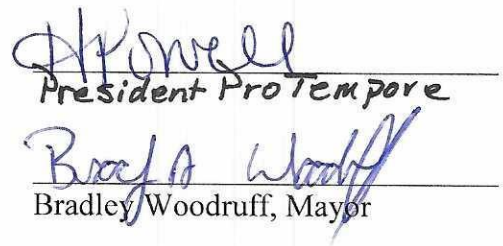 HPowell
President ProTempore
Brad A Woodruff
Bradley Woodruff, Mayor